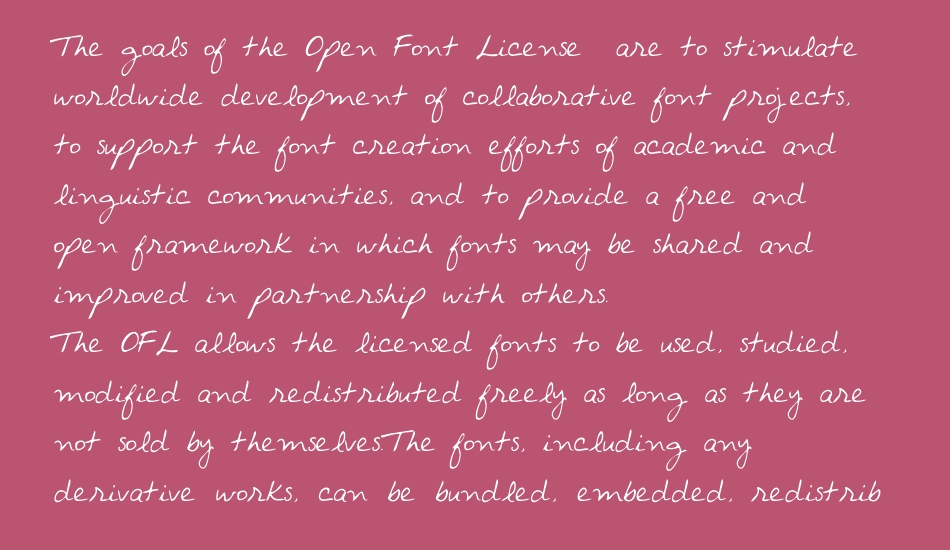 The goals of the Open Font License  are to stimulate
worldwide development of collaborative font projects,
to support the font creation efforts of academic and
linguistic communities, and to provide a free and
open framework in which fonts may be shared and
improved in partnership with others.
The OFL allows the licensed fonts to be used, studied,
modified and redistributed freely as long as they are
not sold by themselves.The fonts, including any
derivative works, can be bundled, embedded, redistrib